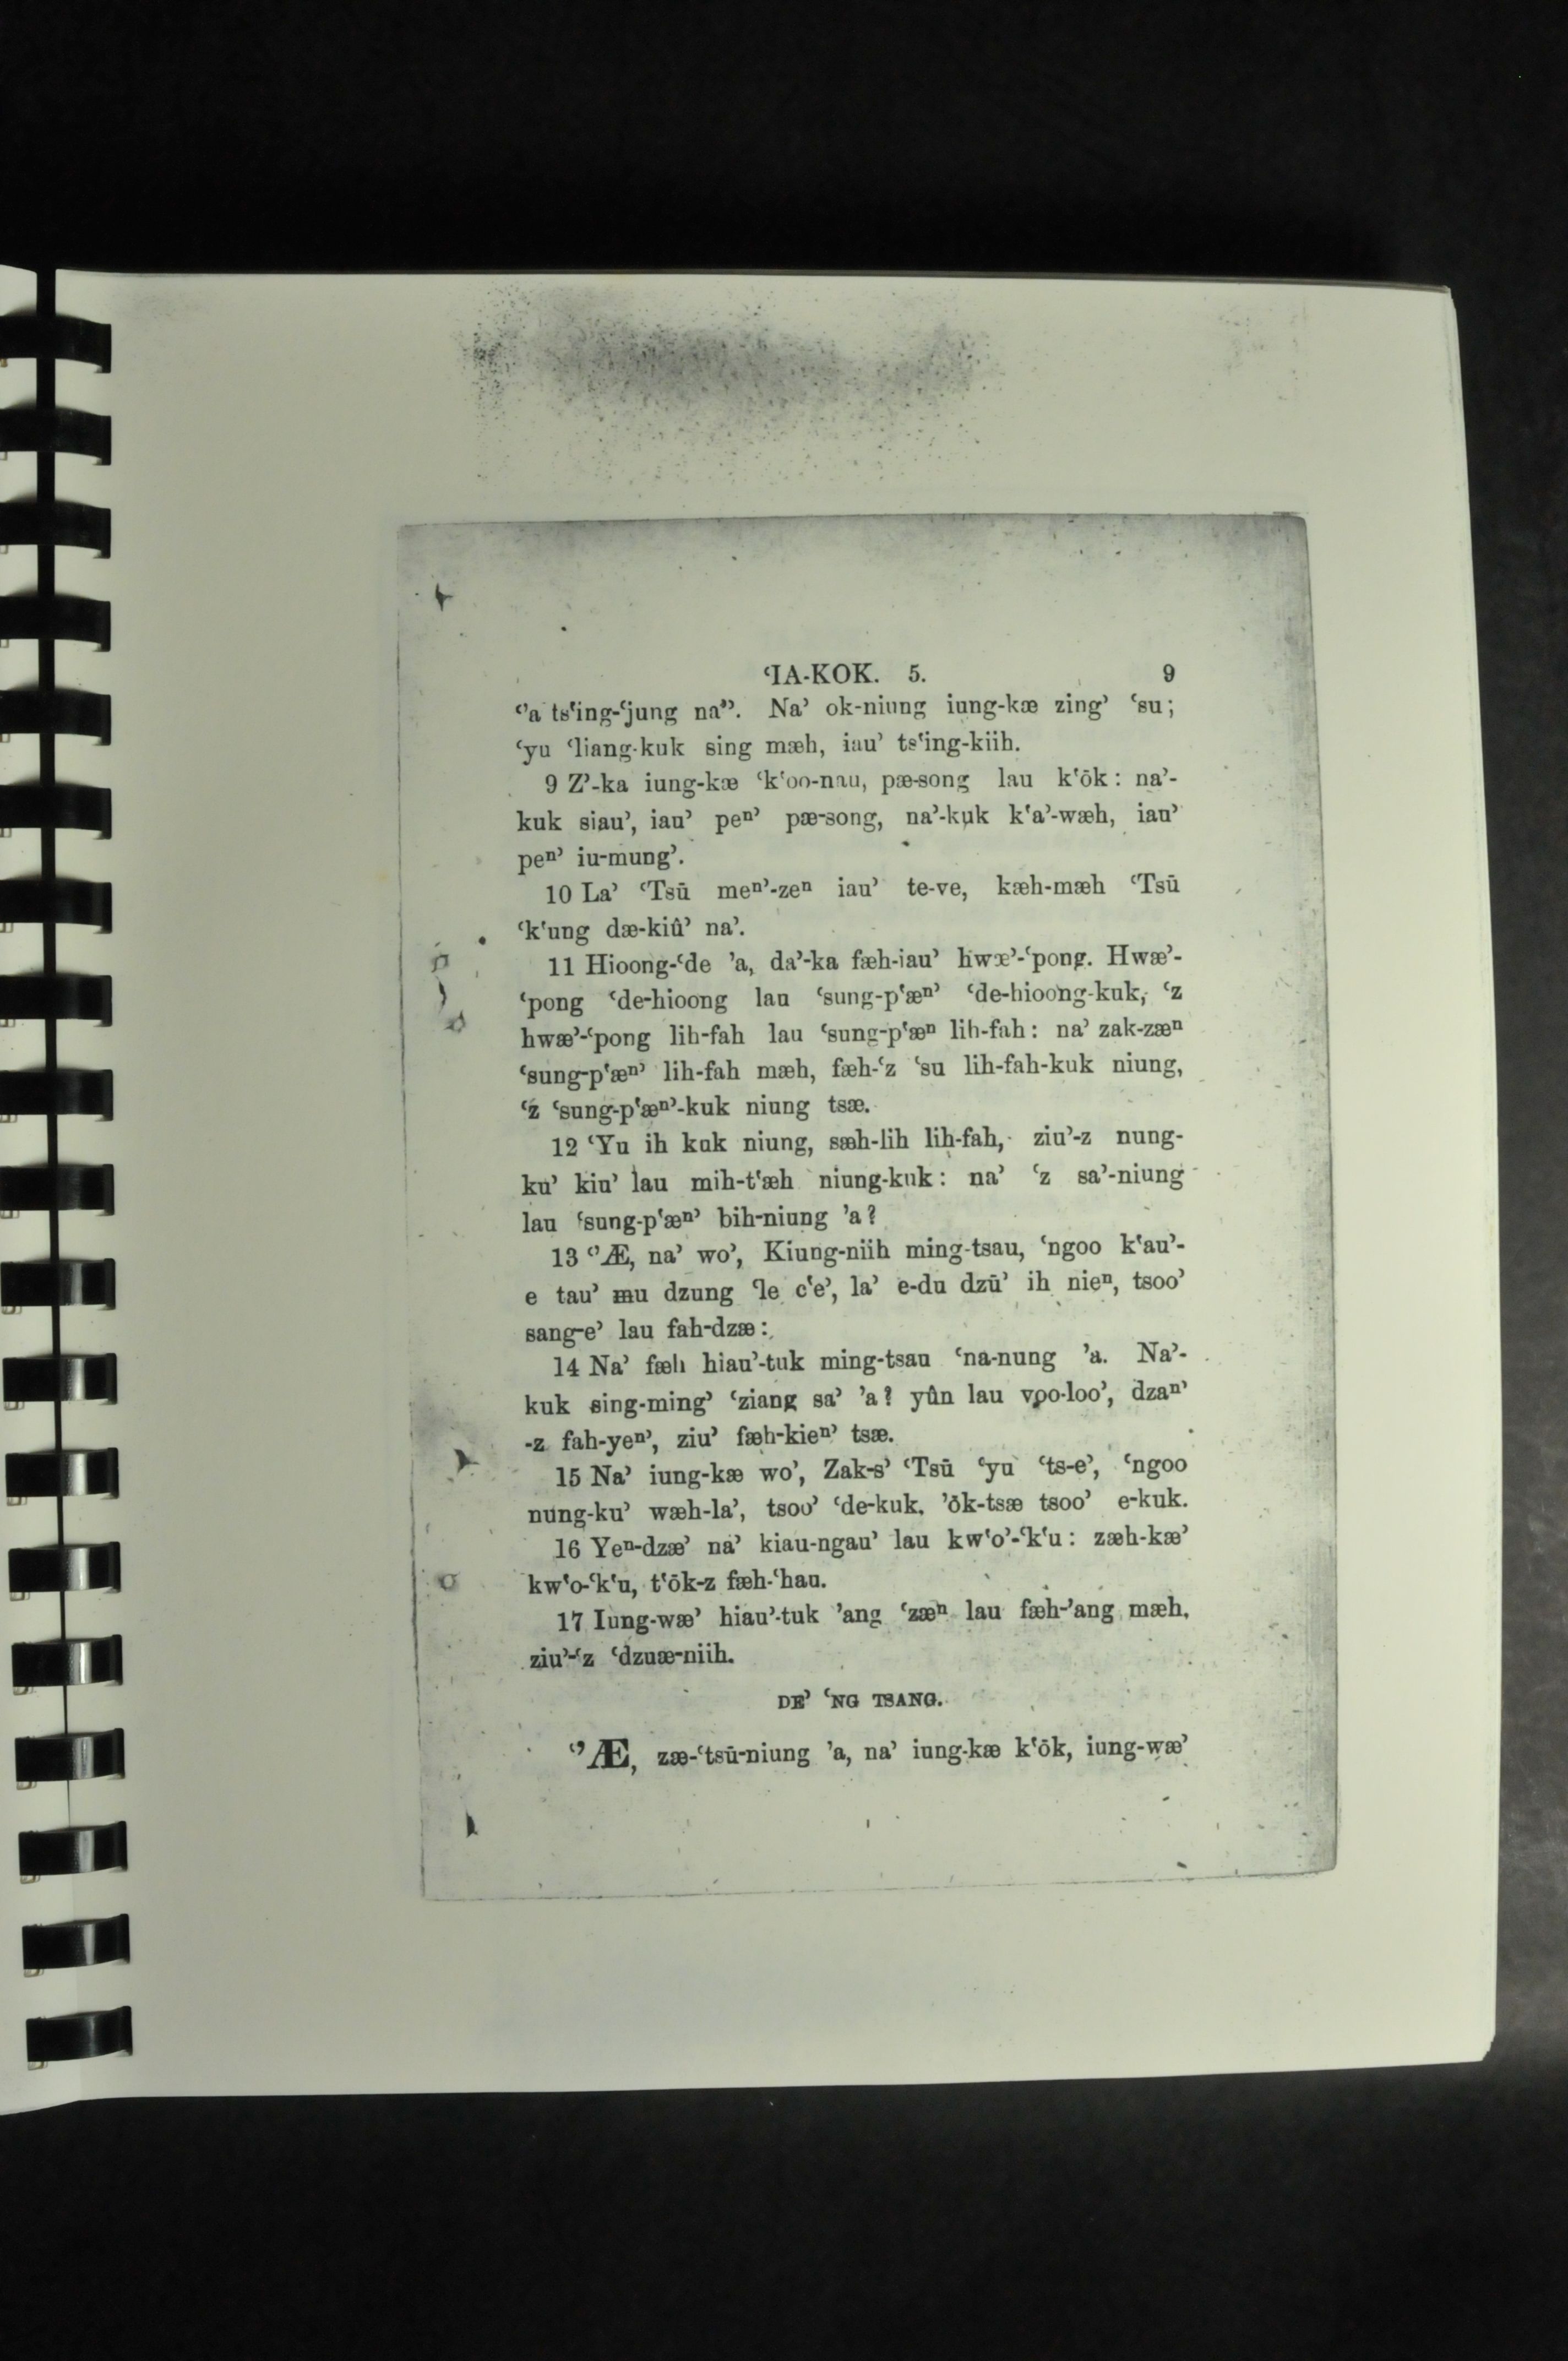 ‘IA-KOK. 5. 9
‘’a ts‘ing-‘jung na’’. Na’ ok-niung iung-kæ zing’ ‘su;
‘yu ‘liang-kuk sing mæh, iau’ ts‘ing-kiih.
9 Z’-ka iung-kæ ‘k‘oo-nau, pæ-song lau k‘ōk: na’-
kuk siau’, iau’ peⁿ’ pæ-song, na’-kuk k‘a’-wæh, iau’
peⁿ’ iu-mung’.
10 La’ ‘Tsū meⁿ’-zeⁿ iau’ te-ve, kæh-mæh ‘Tsū
‘k‘ung dæ-kiû’ na’.
11 Hioong-‘de ’a, da’-ka fæh-iau’ hwæ’-‘pong. Hwæ’-
‘pong ‘de-hioong lau ‘sung-p‘æⁿ’ ‘de-hioong-kuk, ‘z
hwæ’-‘pong lih-fah lau ‘sung-p‘æⁿ lih-fah: na’ zak-zæⁿ
‘sung-p‘æⁿ’ lih-fah mæh, fæh-‘z ‘su lih-fah-kuk niung,
‘z ‘sung-p‘æⁿ’-kuk niung tsæ.
12 ‘Yu ih kuk niung, sæh-lih lih-fah, ziu’-z nung-
ku’ kiu’ lau mih-t‘æh niung-kuk: na’ ‘z sa’-niung
lau ‘sung-p‘æⁿ’ bih-niung ’a?
13 ‘’Æ, na’ wo’, Kiung-niih ming-tsau, ‘ngoo k‘au’-
e tau’ mu dzung ‘le c‘e’, la’ e-du dzū’ ih nieⁿ, tsoo’
sang-e’ lau fah-dzæ:
14 Na’ fæh hiau’-tuk ming-tsau ‘na-nung ’a. Na’-
kuk sing-ming’ ‘ziang sa’ ’a? yûn lau voo-loo’, dzaⁿ’
-z fah-yeⁿ’, ziu’ fæh-kieⁿ’ tsæ.
15 Na’ iung-kæ wo’, Zak-s’ ‘Tsū ‘yu ‘ts-e’, ‘ngoo
nung-ku’ wæh-la’, tsoo’ ‘de-kuk. ’ōk-tsæ tsoo’ e-kuk.
16 Yeⁿ-dzæ’ na’ kiau-ngau’ lau kw‘o’-‘k‘u: zæh-kæ’
kw‘o-‘k‘u, t‘ōk-z fæh-‘hau.
17 Iung-wæ’ hiau’-tuk ’ang ‘zæⁿ lau fæh-’ang mæh,
ziu’-‘z ‘dzuæ-niih.
DE’ ‘NG TSANG.
‘’Æ, zæ-‘tsū-niung ’a, na’ iung-kæ k‘ōk, iung-wæ’